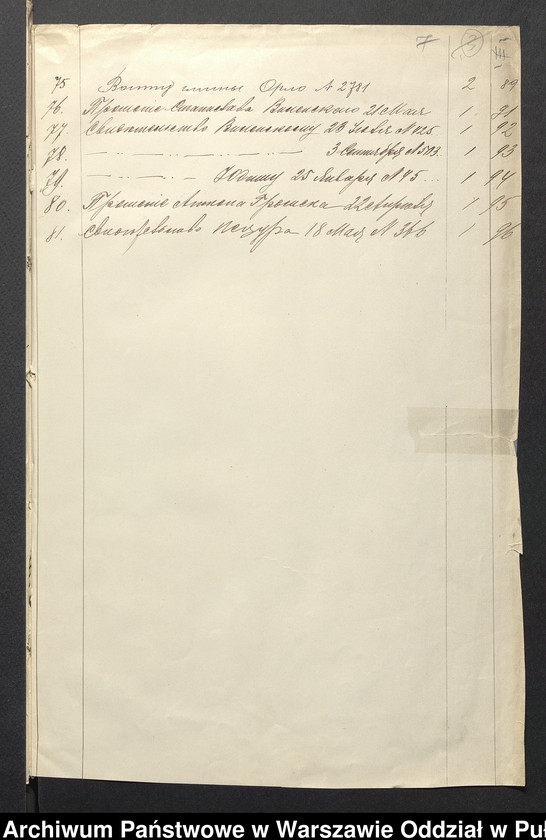 7
III
75 Войту гмины Орло N 2781 2 89
76. Прошение Станислава Виленского 21 Мая 1 91
77. Свидетельство Виленскому 23 Іюля N 425 1 92
78. — — — 3 Сентября N 573 1 93
79. — — — 25 Января N 45 1 94
80. Прошение Антона 22 Апреля 1 95
81. Свидетельство 18 Мая N 366 1 96
Archiwum Państwowe w Warszawie Oddział w Pu